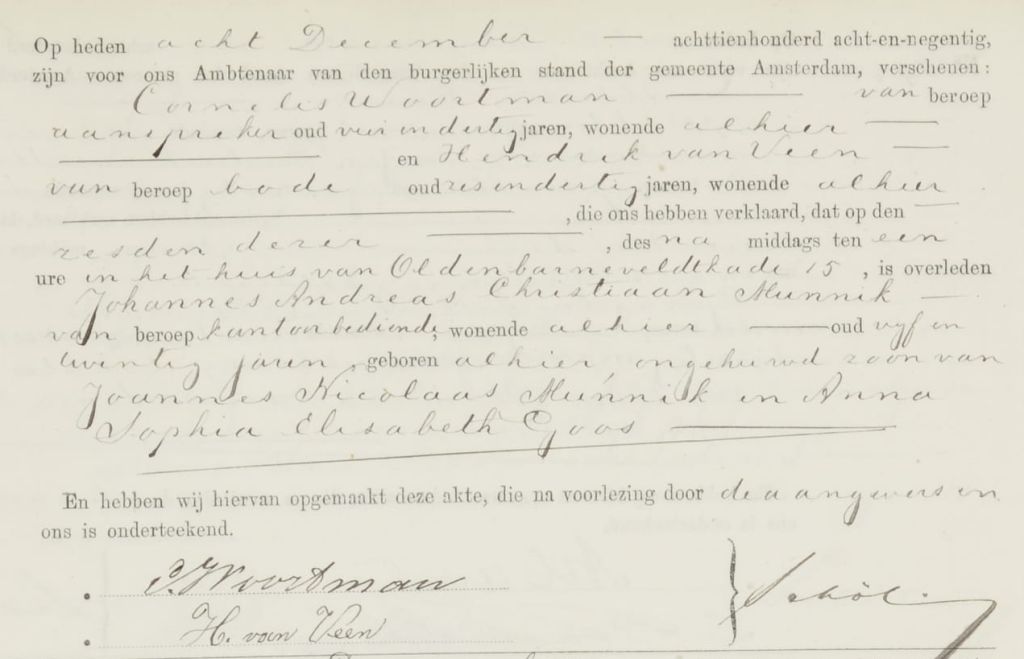 Op heden acht December — achttienhonderd acht-en-negentig,
zijn voor ons Ambtenaar van den burgerlijken stand der gemeente Amsterdam, verschenen:
Cornelis Woortman — van beroep
aanspreker oud vier en dertig jaren, wonende alhier —
— en Hendrik van Veen —
van beroep bode oud zes en dertig jaren, wonende alhier
— , die ons hebben verklaard, dat op den —
zesden dezer — , des na middags ten een
ure in het huis van Oldenbarneveldtkade 15 , is overleden
Johannes Andreas Christiaan Munnik —
van beroep kantoorbediende, wonende alhier — oud vyf en
twintig jaren, geboren alhier, ongehuwd zoon van
Joannes Nicolaas Munnik en Anna
Sophia Elisabeth Goos —
En hebben wij hiervan opgemaakt deze akte, die na voorlezing door de aangevers en
ons is onderteekend.
Woortman
H. van Veen